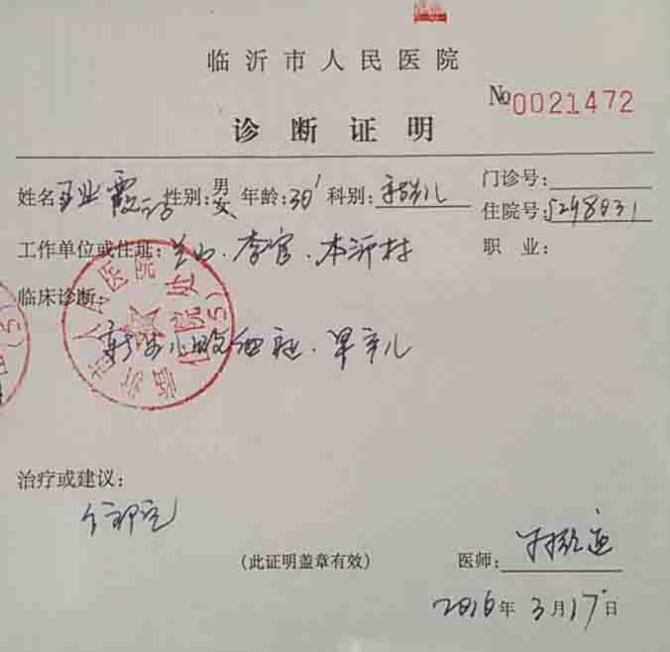 临沂市人民医院
No 0021472
诊断证明
姓名 王业霞之 性别:男 女 年龄:30' 科别:新生儿 门诊号:
住院号:5298031
工作单位或住址:兰山.李官.本沂村 职 业:
临床诊断:
新生儿败血症.早产儿
治疗或建议:
住印院
(此证明盖章有效) 医师:
2016年3月17日